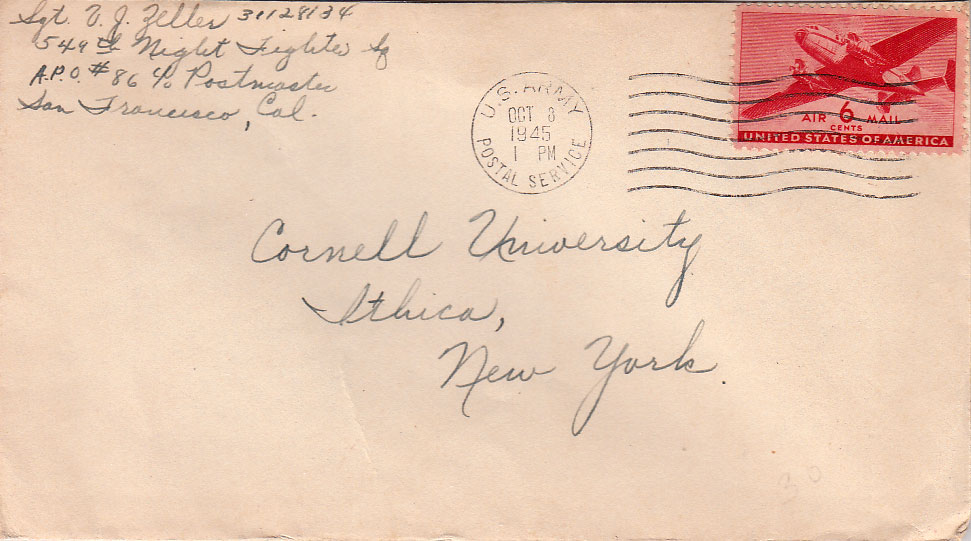 Sgt. V. J. Zeller 31128134
549th Night Fighter Sq
A.P.O. #86 c/o Postmaster
San Francisco, Cal.
U.S. ARMY
OCT 8
1945
1 PM
POSTAL SERVICE
AIR 6 MAIL
CENTS
UNITED STATES OF AMERICA
Cornell University
Ithica,
New York
30